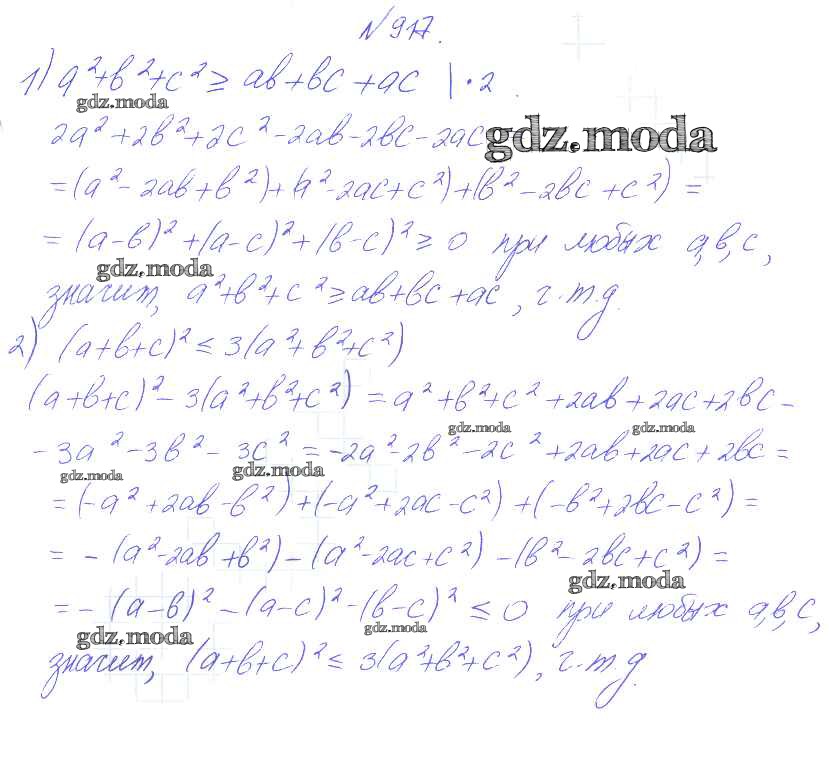 № 917.
1) a²+b²+c² ≥ ab+bc+ac |·2
gdz.moda
2a²+2b²+2c²-2ab-2bc-2ac
gdz.moda
=(a²-2ab+b²)+(a²-2ac+c²)+(b²-2bc+c²) =
= (a-b)²+(a-c)²+(b-c)² ≥ 0 при любых a,b,c,
gdz.moda
значит, a²+b²+c² ≥ ab+bc+ac, ч.т.д.
2) (a+b+c)² ≤ 3(a²+b²+c²)
(a+b+c)²-3(a²+b²+c²) = a²+b²+c²+2ab+2ac+2bc-
gdz.moda gdz.moda
-3a²-3b²-3c² = -2a²-2b²-2c²+2ab+2ac+2bc =
gdz.moda gdz.moda
= (-a²+2ab-b²)+(-a²+2ac-c²)+(-b²+2bc-c²) =
= -(a²-2ab+b²)-(a²-2ac+c²)-(b²-2bc+c²) =
gdz.moda
= -(a-b)²-(a-c)²-(b-c)² ≤ 0 при любых a,b,c,
gdz.moda gdz.moda
значит, (a+b+c)² ≤ 3(a²+b²+c²), ч.т.д.